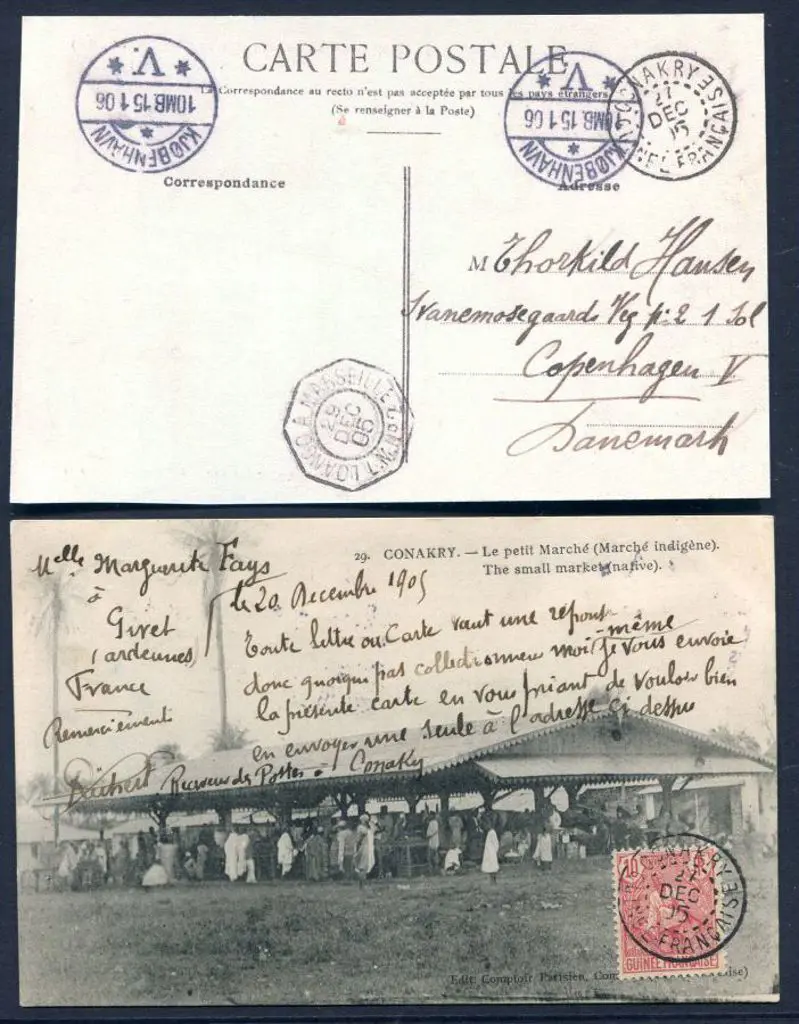 CARTE POSTALE
La Correspondance au recto n'est pas acceptée par tous les pays étrangers
(Se renseigner à la Poste)
V.
10MB. 15 1 06
KJØBENHAVN
V.
10MB. 15 1 06
KJØBENHAVN
CONAKRY
27
DEC
05
FRANÇAISE
Correspondance
Adresse
M Thorkild Hansen
Svanemosegaards Veg 2 1 Sol
Copenhagen V
Danemark
LOANGO A MARSEILLE L.M. Nº1
29
DEC
05
29. CONAKRY. — Le petit Marché (Marché indigène).
The small market (native).
Melle Marguerite Fays
à
Givet
(ardennes)
France
Remerciements
le 20 Decembre 1905
Toute lettre ou Carte vaut une reponse
donc quoique pas collectionneur moi-même je vous envoie
la présente carte en vous priant de vouloir bien
en envoyer une seule à l'adresse ci dessus
Receveur des Postes à Conakry
10
GUINÉE FRANÇAISE
CONAKRY
27
DEC
05
FRANÇAISE
Edit. Comptoir Parisien,